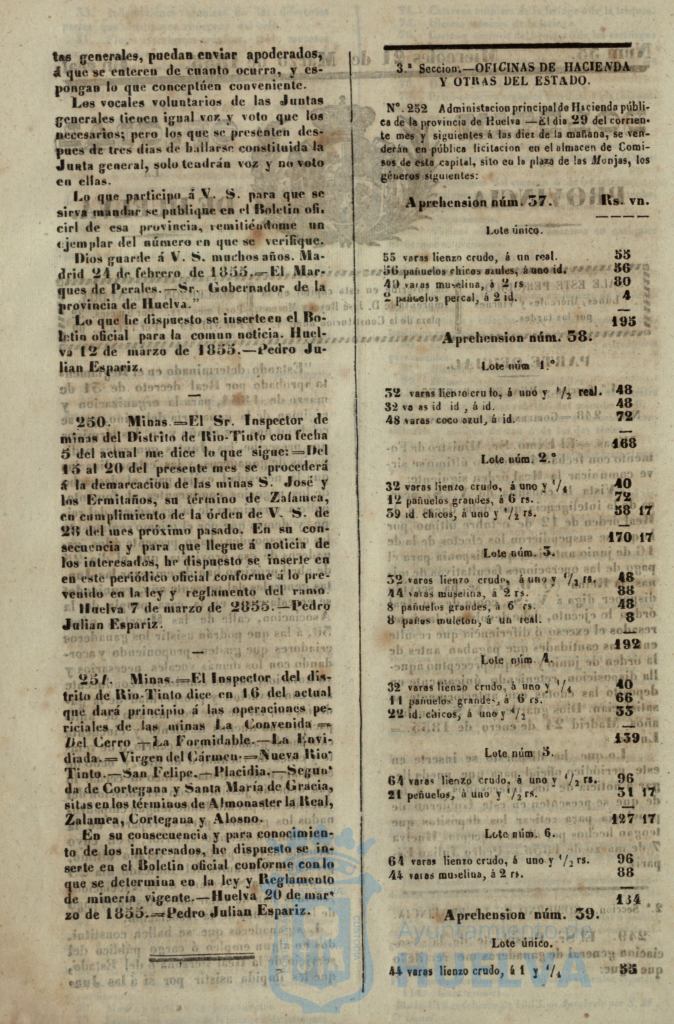 tas generales, puedan enviar apoderados,
á que se enteren de cuanto ocurra, y es-
pongan lo que conceptúen conveniente.
Los vocales voluntarios de las Juntas
generales tienen igual voz y voto que los
necesarios; pero los que se presenten des-
pues de tres dias de hallarse constituida la
Junta general, solo tendrán voz y no voto
en ellas.
Lo que participo á V. S. para que se
sirva mandar se publique en el Boletin ofi.
cirl de esa provincia, remitiéndome un
ejemplar del número en que se verifique.
Dios guarde á V. S. muchos años. Ma-
drid 24 de febrero de 1855.=El Mar-
ques de Perales.—Sr. Gobernador de la
provincia de Huelva."
Lo que he dispuesto se inserte en el Bo-
letin oficial para la comun noticia. Huel-
va 12 de marzo de 1855.—Pedro Ju-
lian Espariz.
250. Minas.=El Sr. Inspector de
minas del Distrito de Rio-Tinto con fecha
5 del actual me dice lo que sigue:=Del
15 al 20 del presente mes se procederá
á la demarcacion de las minas S. José y
los Ermitaños, su término de Zalamea,
en cumplimiento de la órden de V. S. de
28 del mes próximo pasado. En su con-
secuencia y para que llegue á noticia de
los interesados, he dispuesto se inserte en
en este periódico oficial conforme á lo pre-
venido en la ley y reglamento del ramo
Huelva 7 de marzo de 2855.—Pedro
Julian Espariz.
251. Minas.=El Inspector del dis-
trito de Rio-Tinto dice en 16 del actual
que dará principio á las operaciones pe-
riciales de las minas La Convenida =
Del Cerro —La Formidable.—La Envi-
diada.=Virgen del Cármen.=Nueva Rio
Tinto.—San Felipe.—Placidia.—Segun
da de Cortegana y Santa María de Gracia,
sitas en los términos de Almonaster la Real,
Zalamea, Cortegana y Alosno.
En su consecuencia y para conocimien-
to de los interesados, he dispuesto se in-
serte en el Boletin oficial conforme con lo
que se determina en la ley y Reglamento
de minería vigente.—Huelva 20 de mar
zo de 1855.=Pedro Julian Espariz.
3.ª Seccion.—OFICINAS DE HACIENDA
Y OTRAS DEL ESTADO.
Nº. 252 Administacion principal de Hacienda públi-
ca de la provincia de Huelva —El dia 29 del corrien-
te mes y siguientes á las diez de la mañana, se ven-
derán en pública licitacion en el almacen de Comi-
sos de esta capital, sito en la plaza de las Monjas, los
géneros siguientes:
Aprehension núm. 37. Rs. vn.
Lote único.
55 varas lienzo crudo, á un real. 55
56 pañuelos chicos azules, á uno id. 56
40 varas muselina, á 2 rs 80
2 pañuelos percal, á 2 id. 4
195
Aprehension núm. 38.
Lote núm 1.º
32 varas lienzo crudo, á uno y 1/2 real. 48
32 va as id id , á id. 48
48 varas coco azul, á id. 72
168
Lote núm. 2.º
32 varas lienzo crudo, á uno y 1/4 40
12 pañuelos grandes, á 6 rs. 72
39 id. chicos, á uno y 1/2 rs. 58 17
170 17
Lote núm. 3.
32 varas lienzo crudo, á uno y 1/2 rs. 48
44 varas muselina, á 2 rs. 88
8 pañuelos grandes, á 6 rs. 48
8 paños muleton, á un real. 8
192
Lote núm 4.
32 varas lienzo crudo, á uno y 1/4 40
11 pañuelos grandes, á 6 rs. 66
22 id. chicos, á uno y 1/2 33
139
Lote núm. 5.
64 varas lienzo crudo, á uno y 1/2 rs. 96
21 peñuelos, á uno y 1/2 rs. 31 17
127 17
Lote núm. 6.
64 varas lienzo crudo, á uno y 1/2 rs. 96
44 varas muselina, á 2 rs. 88
184
Aprehension núm. 39.
Lote único.
44 varas lienzo crudo, á 1 y 1/4 55
Ayuntamiento de
HUELVA